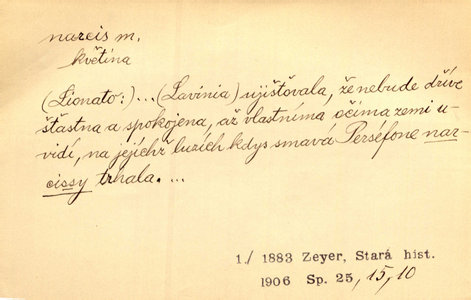 narcis m.
květina
(Lionato:)...(Lavinia) ujišťovala, že nebude dříve
šťastna a spokojena, až vlastníma očima zemi u-
vidí, na jejíchž luzích kdys smavá Perséfone nar-
cissy trhala....
1./ 1883 Zeyer, Stará hist.
1906 Sp. 25, 15, 10